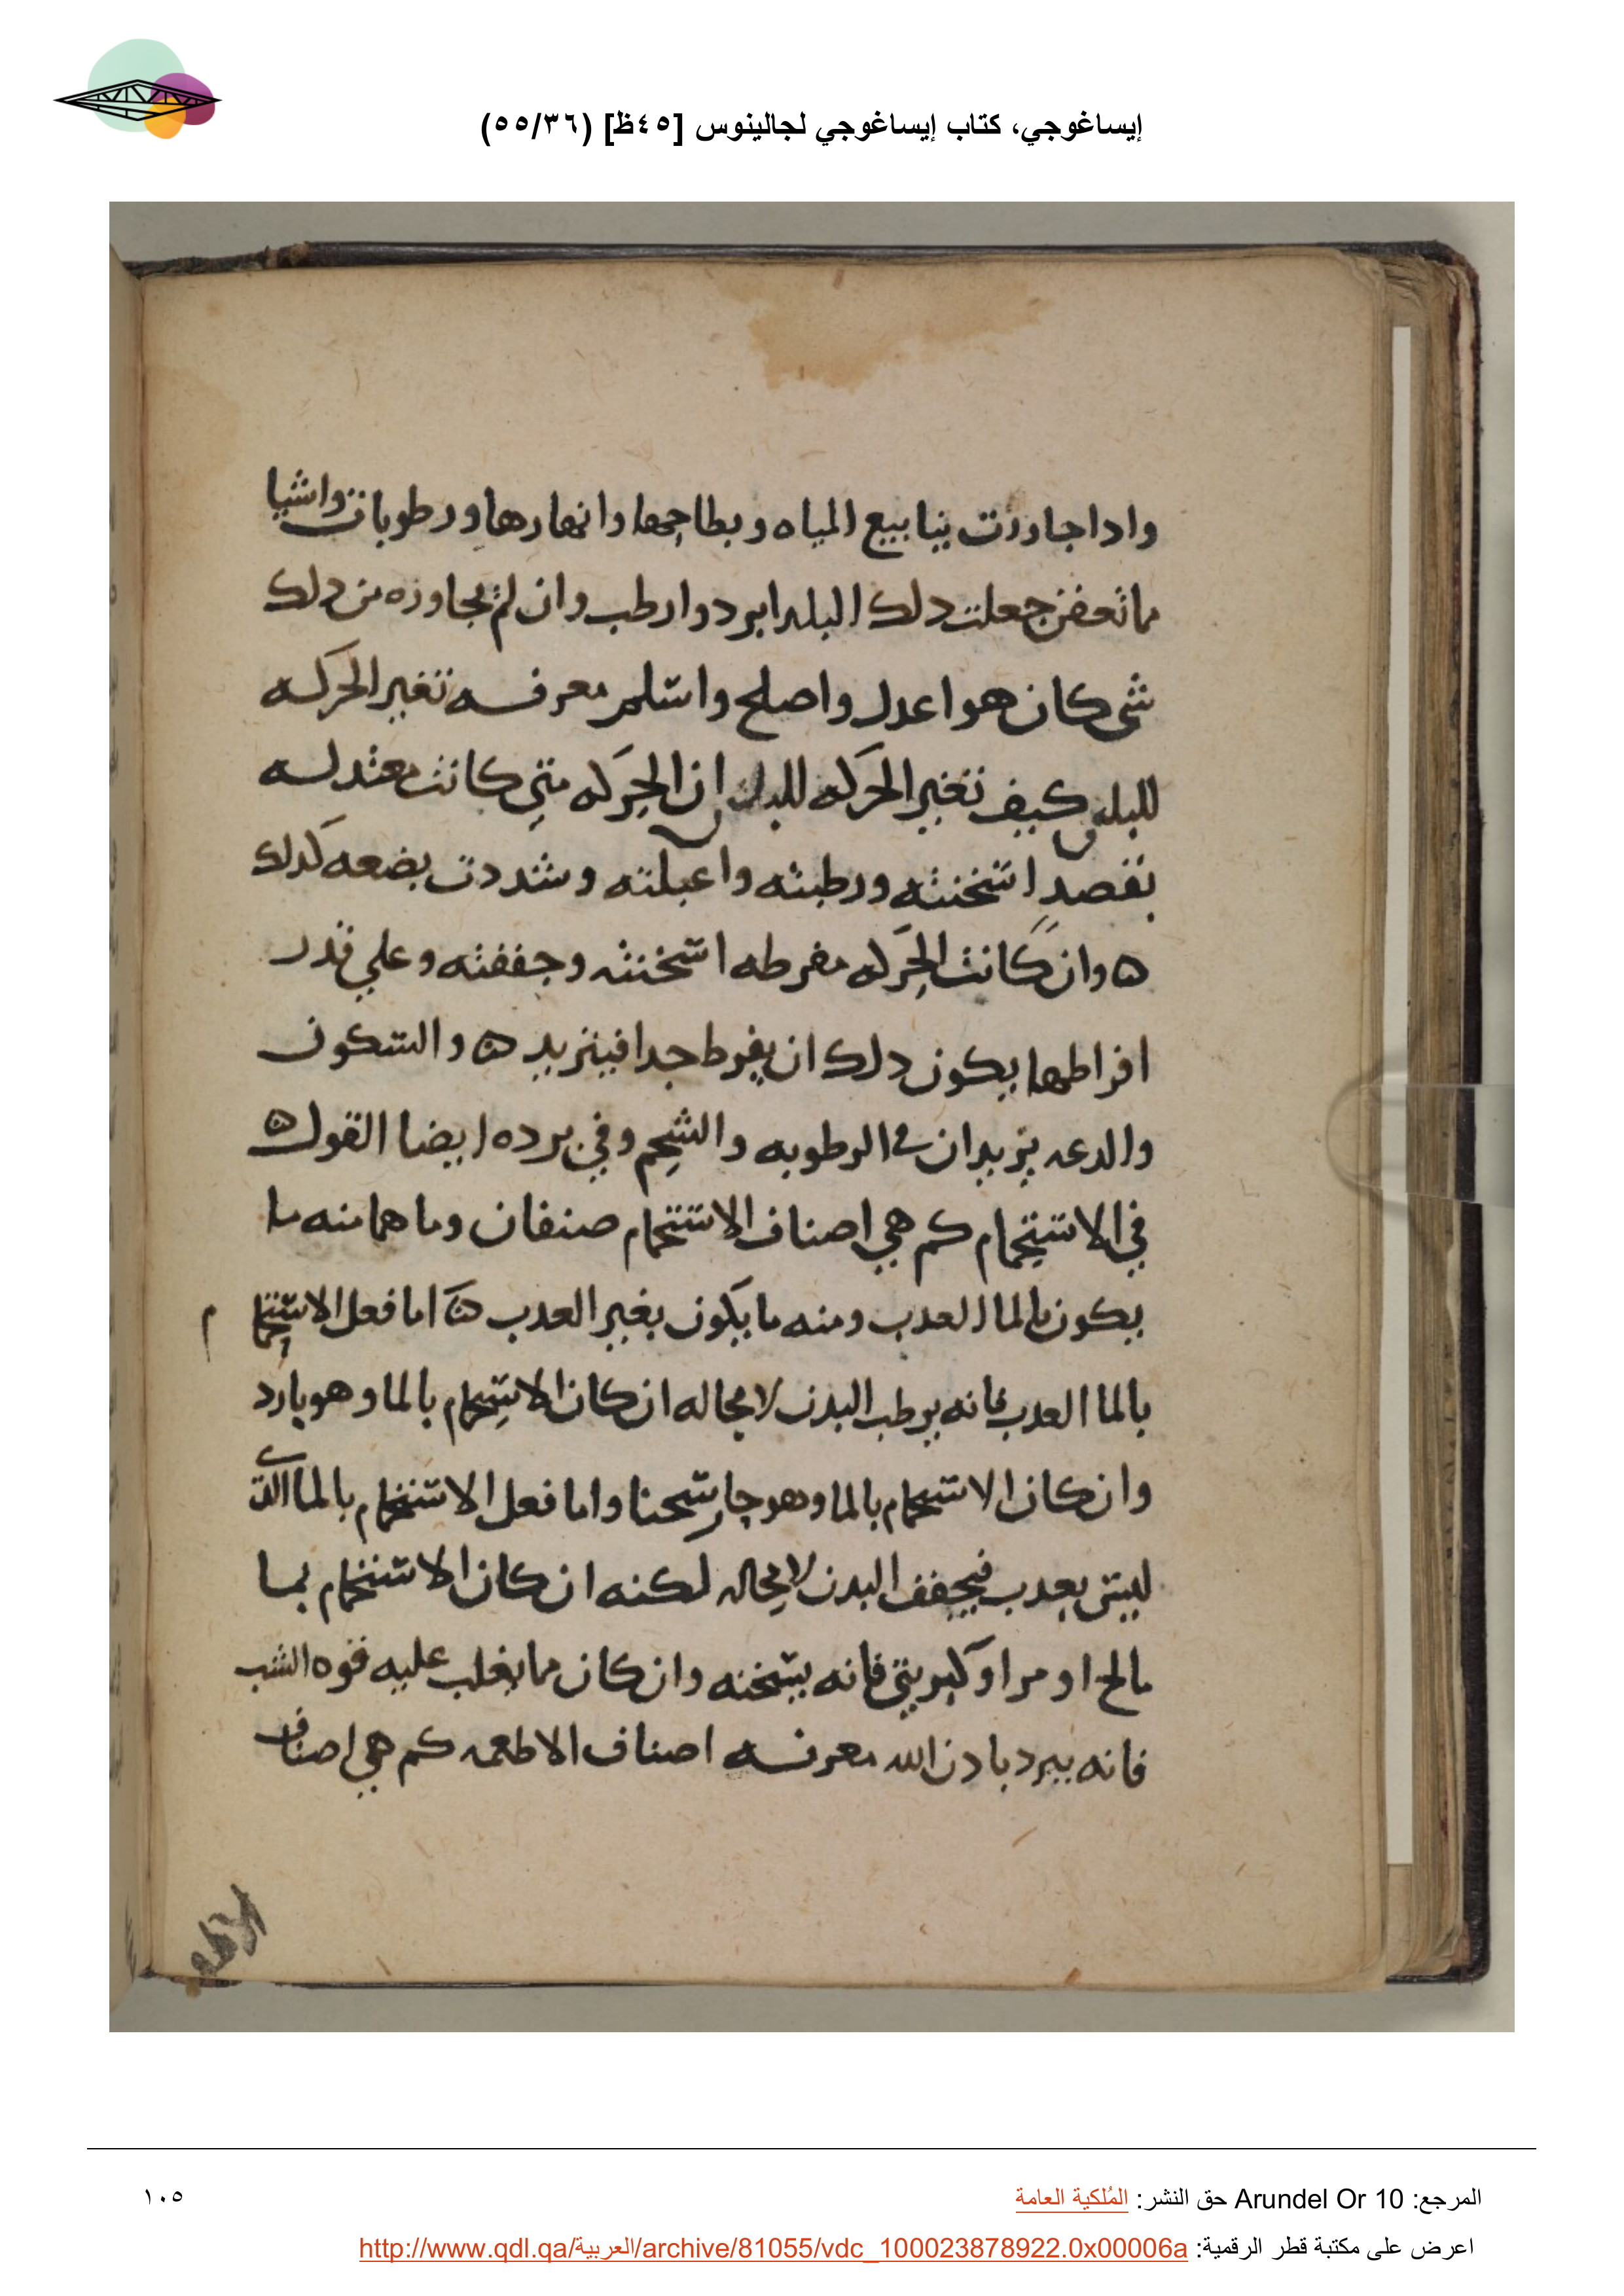 إيساغوجي، كتاب إيساغوجي لجالينوس [٤٥ظ] (٥٥/٣٦)
وادا جاورت ينابيع المياه وبطاحها وانهارها ورطوبات واشيا
مما تعفن جعلت دلك البلد ابرد وارطب وان لم يجاوره من دلك
شى كان هو اعدل واصلح واسلم معرفه تغير الحركه
للبدن كيف تغير الحركه للبدن ان الحركه متي كانت معتدله
بقصد اسخنته ورطبته واعبلته وشددت بضعه كدلك
ه وان كانت الحركه مفرطه اسخنته وجففته وعلي قدر
افراطها يكون دلك ان يفرط جدا فيزيد ه والسكون
والدعه يزيدان في الرطوبه والشحم وفي برده ايضا القول ه
في الاستحمام كم هي اصناف الاستحمام صنفان وما هما منه ما
يكون بالما العدب ومنه ما يكون بغير العدب ه اما فعل الاستحمام
بالما العدب فانه يرطب البدن لا محاله ان كان الاستحمام بالما وهو بارد
وان كان الاستحمام بالما وهو حار سخنا واما فعل الاستحمام بالما الدى
ليس بعدب فيجفف البدن لا محاله لكنه ان كان الاستحمام بما
مالح او مر او كبريتي فانه يسخنه وان كان مما يغلب عليه قوه الشب
فانه يبرد بادن الله معرفه اصناف الاطعمه كم هي اصناف
الاطعمه
المرجع: Arundel Or 10 حق النشر: المُلكية العامة
١٠٥
اعرض على مكتبة قطر الرقمية: http://www.qdl.qa/العربية/archive/81055/vdc_100023878922.0x00006a